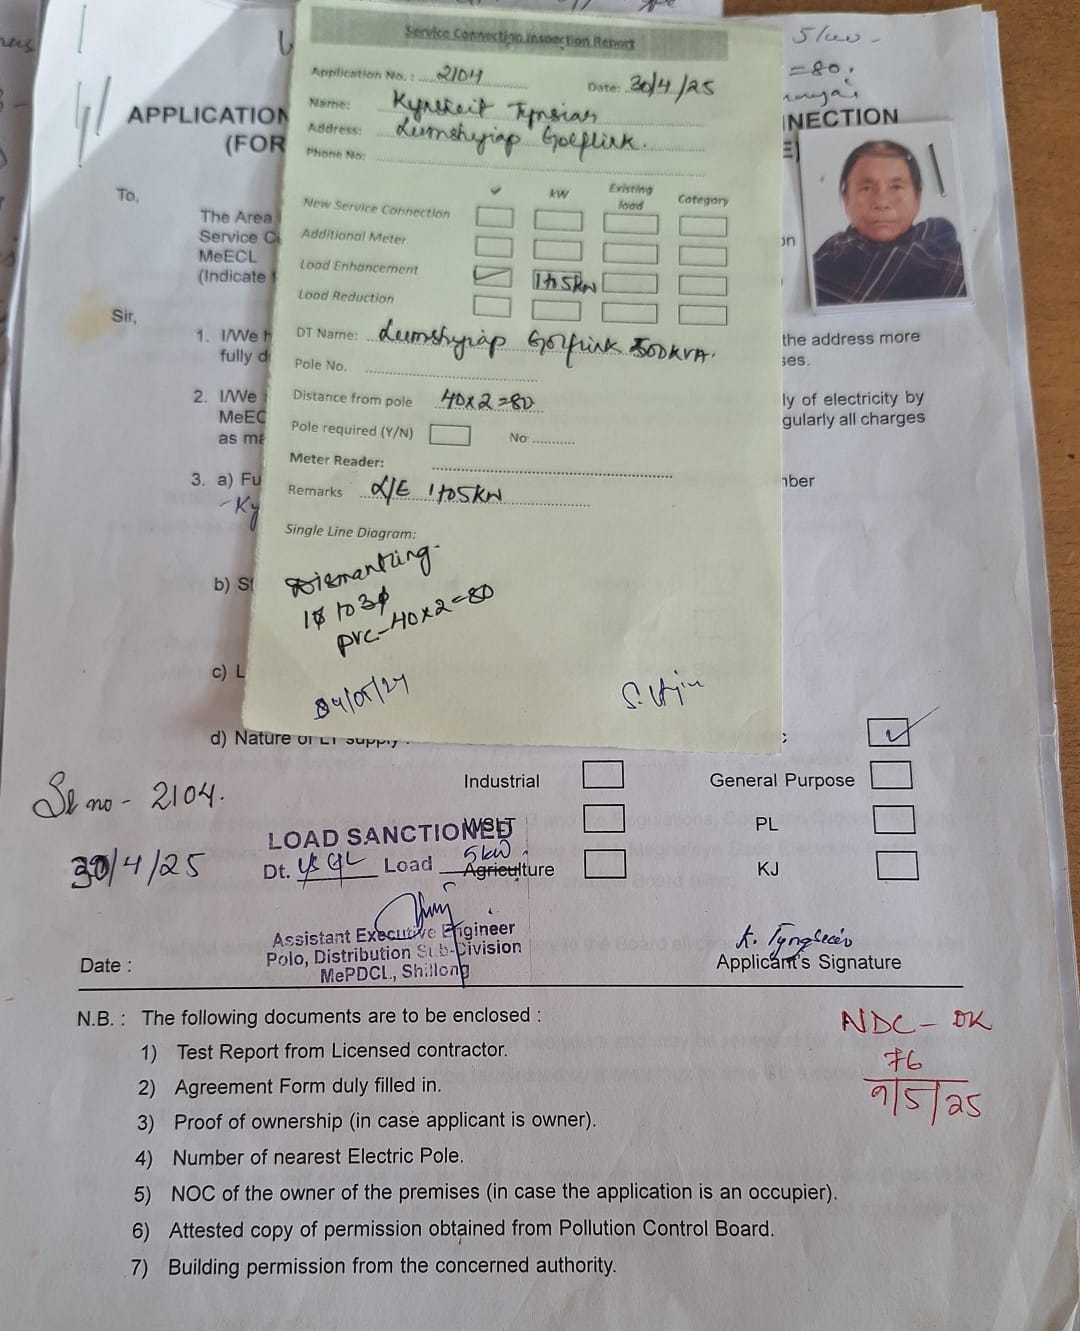 5/kw -
=80.
APPLICATION
NECTION
(FOR
E)
To,
The Area
Service C
on
MeECL
(Indicate
Sir,
1. I/We h
the address more
fully d
ses.
2. I/We
ly of electricity by
MeEC
gularly all charges
as ma
3. a) Fu
nber
- Ky
b) St
c) L
d) Nature of LT supply :
Service Connection Inspection Report
Application No. : 2104
Date: 30/4/25
Name:
Address: Lumshyiap Golflink.
Phone No:
kW
Existing load
Category
New Service Connection
Additional Meter
Load Enhancement
1to5kw
Load Reduction
DT Name: Lumshyiap Golflink 500KVA.
Pole No.
Distance from pole 40x2=80
Pole required (Y/N)
No
Meter Reader:
Remarks L/E 1to5KW
Single Line Diagram:
Dismantling -
1ϕ to 3ϕ
PVC-40x2=80
Industrial
General Purpose
Sl no - 2104.
WSLT
PL
LOAD SANCTIONED
30/4/25
Dt.
Load 5kw
Agriculture
KJ
Assistant Executive Engineer
Polo, Distribution Sub-Division
MePDCL, Shillong
Date :
Applicant's Signature
N.B. : The following documents are to be enclosed :
NDC - OK
1) Test Report from Licensed contractor.
76
2) Agreement Form duly filled in.
9/5/25
3) Proof of ownership (in case applicant is owner).
4) Number of nearest Electric Pole.
5) NOC of the owner of the premises (in case the application is an occupier).
6) Attested copy of permission obtained from Pollution Control Board.
7) Building permission from the concerned authority.